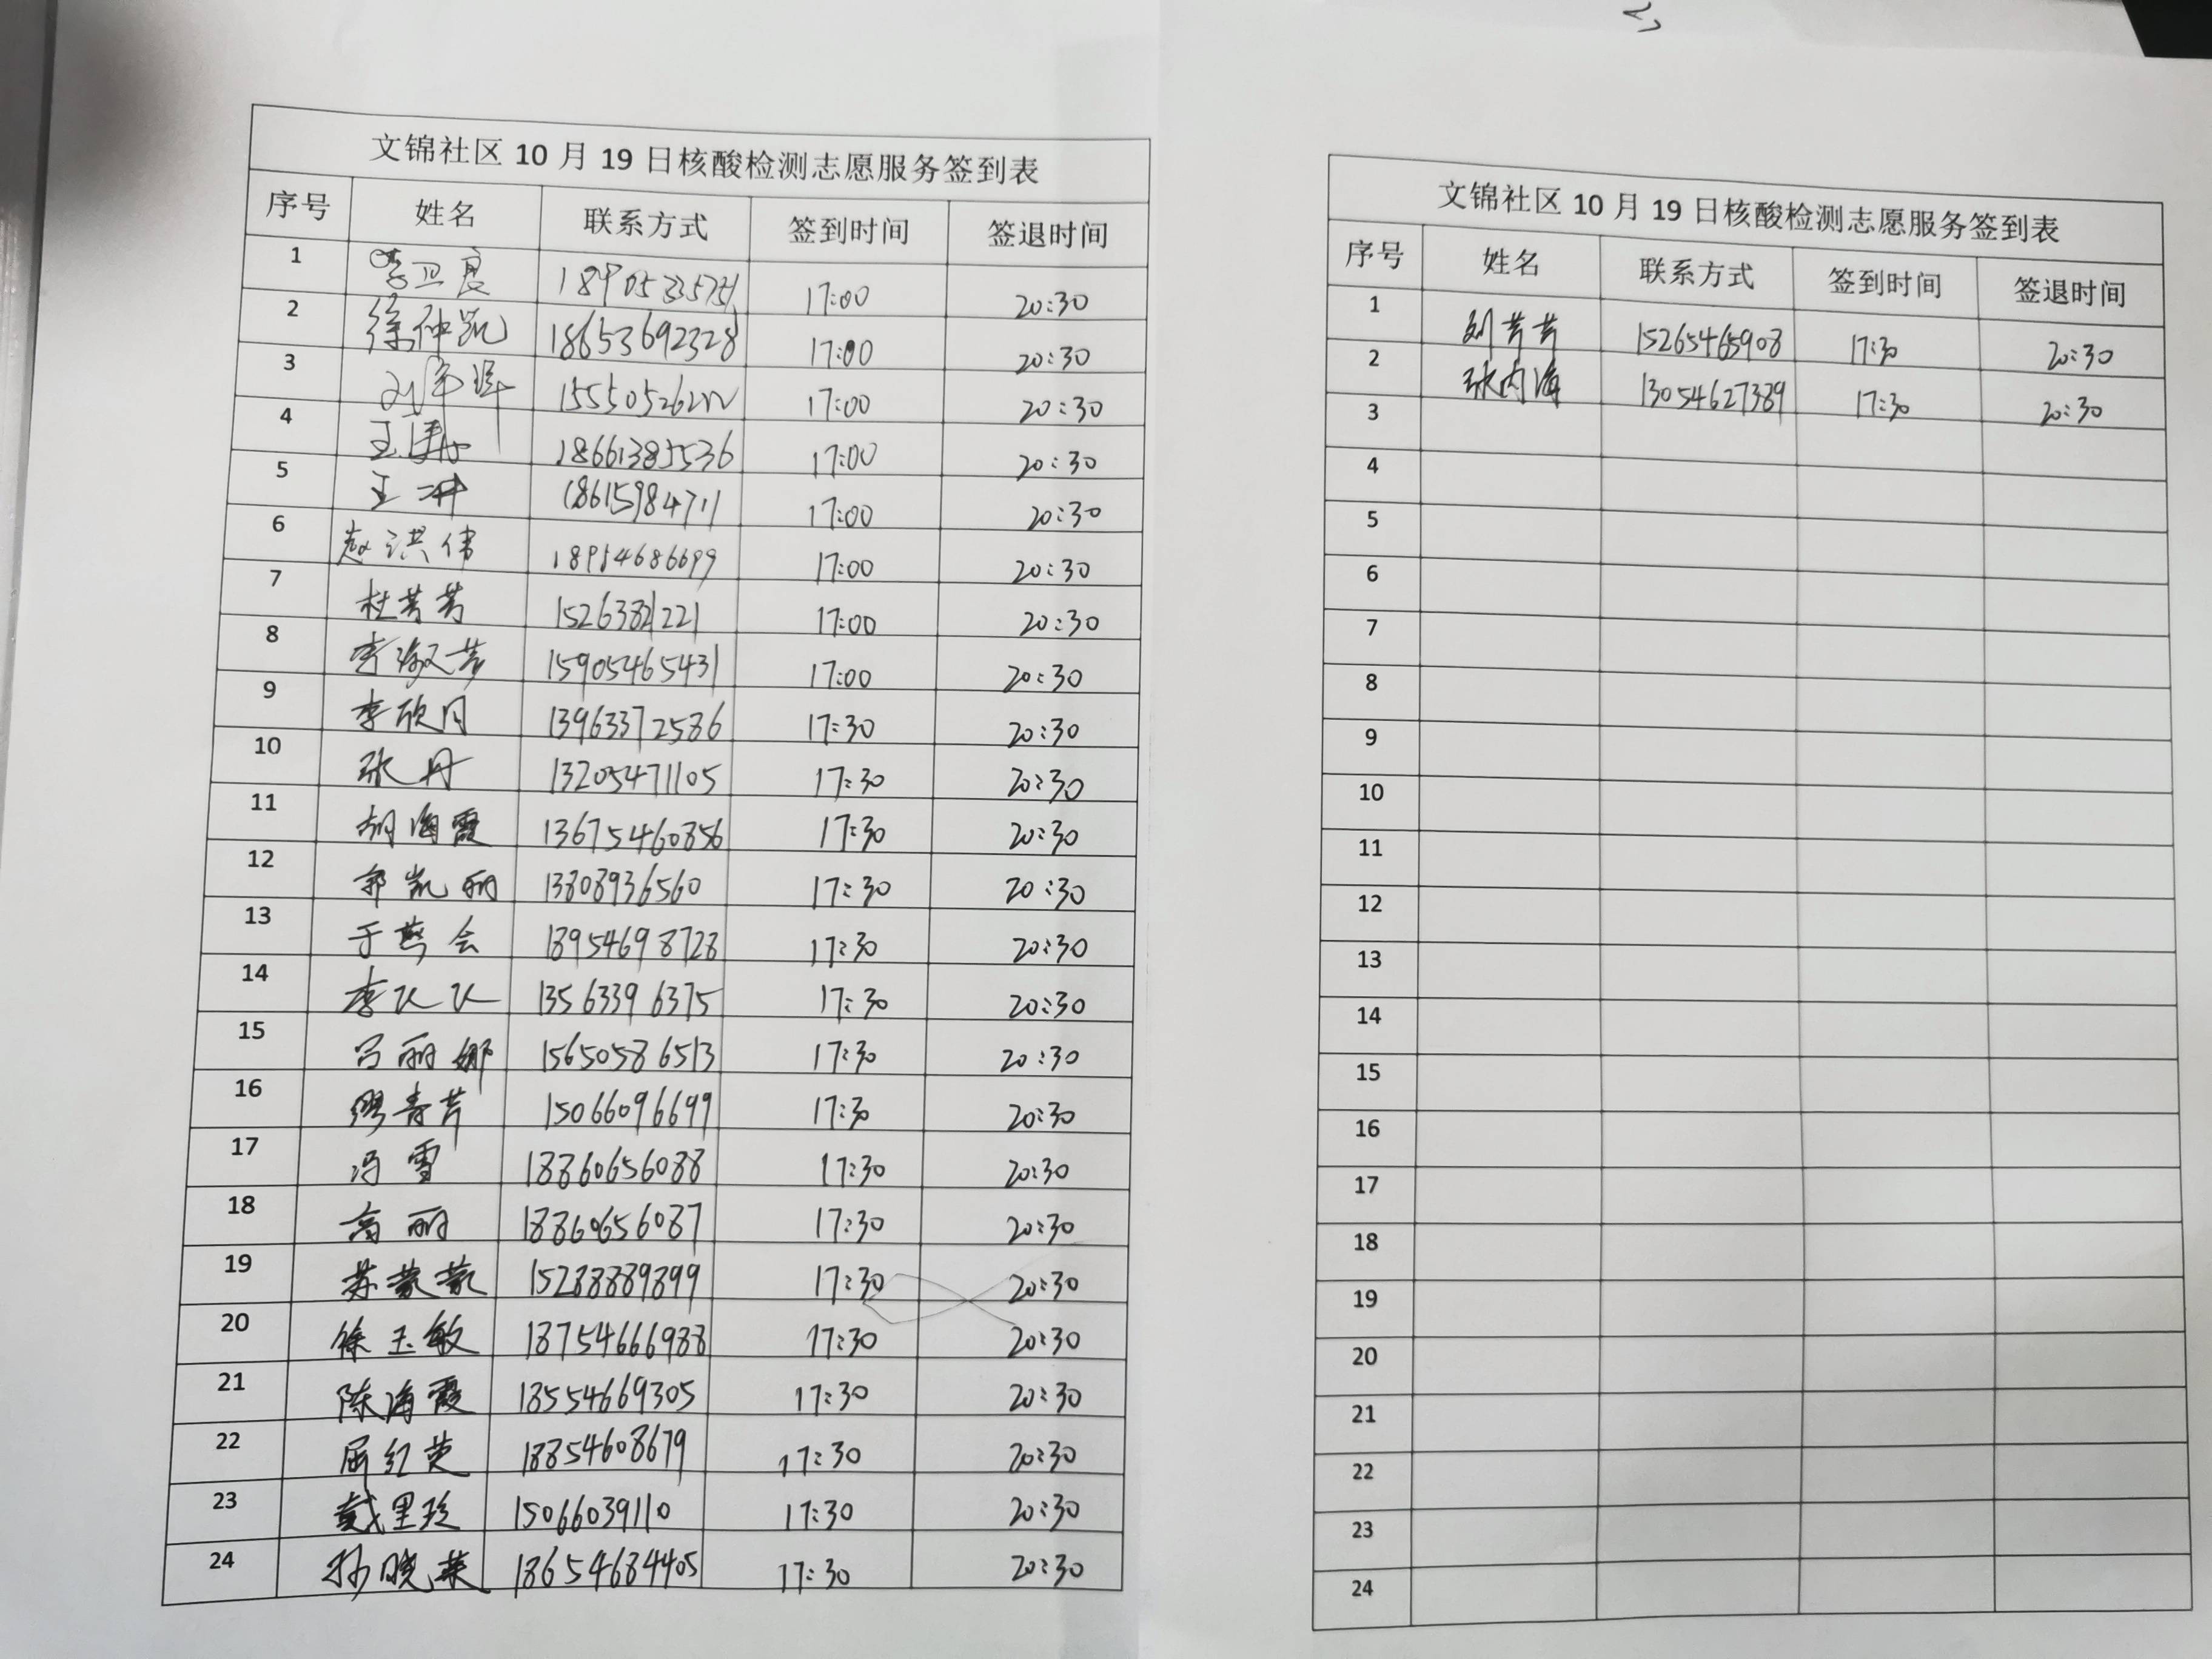 文锦社区 10 月 19 日核酸检测志愿服务签到表
序号 姓名 联系方式 签到时间 签退时间
1 李卫良 17:00 20:30
2 徐仲凯 18653692328 17:00 20:30
3 17:00 20:30
4 王 18661385536 17:00 20:30
5 王冲 18615984711 17:00 20:30
6 赵洪伟 18954686699 17:00 20:30
7 杜芳芳 17:00 20:30
8 李淑芳 15905465431 17:00 20:30
9 李欣月 13963372586 17:30 20:30
10 张丹 13205471105 17:30 20:30
11 胡海霞 13675460856 17:30 20:30
12 郭凯丽 13808936560 17:30 20:30
13 于燕会 18954698728 17:30 20:30
14 李飞飞 13563396375 17:30 20:30
15 吕丽娜 15650586513 17:30 20:30
16 缪青芹 15066096699 17:30 20:30
17 冯雪 18860656088 17:30 20:30
18 高丽 18860656087 17:30 20:30
19 苏蒙蒙 15288889899 17:30 20:30
20 徐玉敏 18754666988 17:30 20:30
21 陈海霞 18554669305 17:30 20:30
22 屈红英 18854608679 17:30 20:30
23 戴里珍 15066039110 17:30 20:30
24 孙晓英 18654684405 17:30 20:30
文锦社区 10 月 19 日核酸检测志愿服务签到表
序号 姓名 联系方式 签到时间 签退时间
1 刘芳芳 15265465908 17:30 20:30
2 张内海 13054627389 17:30 20:30
3
4
5
6
7
8
9
10
11
12
13
14
15
16
17
18
19
20
21
22
23
24